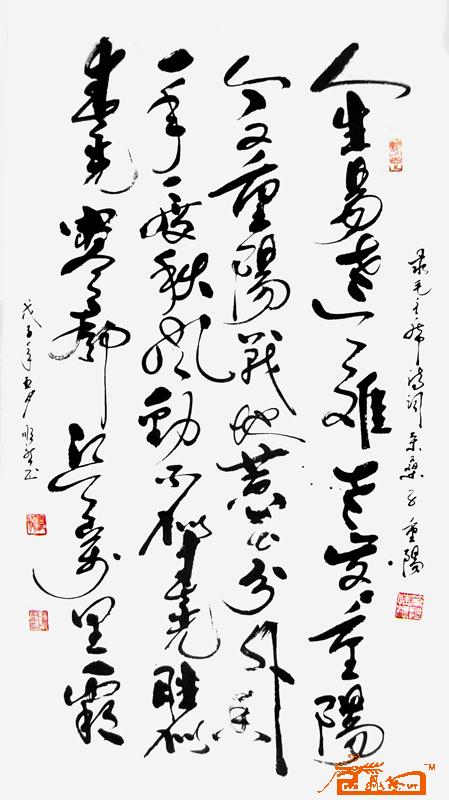 录毛主席诗词采桑子重陽
人生易老天難老岁々重陽
今又重陽战地黄花分外香
一年一度秋风勁不似春光胜似
春光寥廓江天万里霜
戊子年